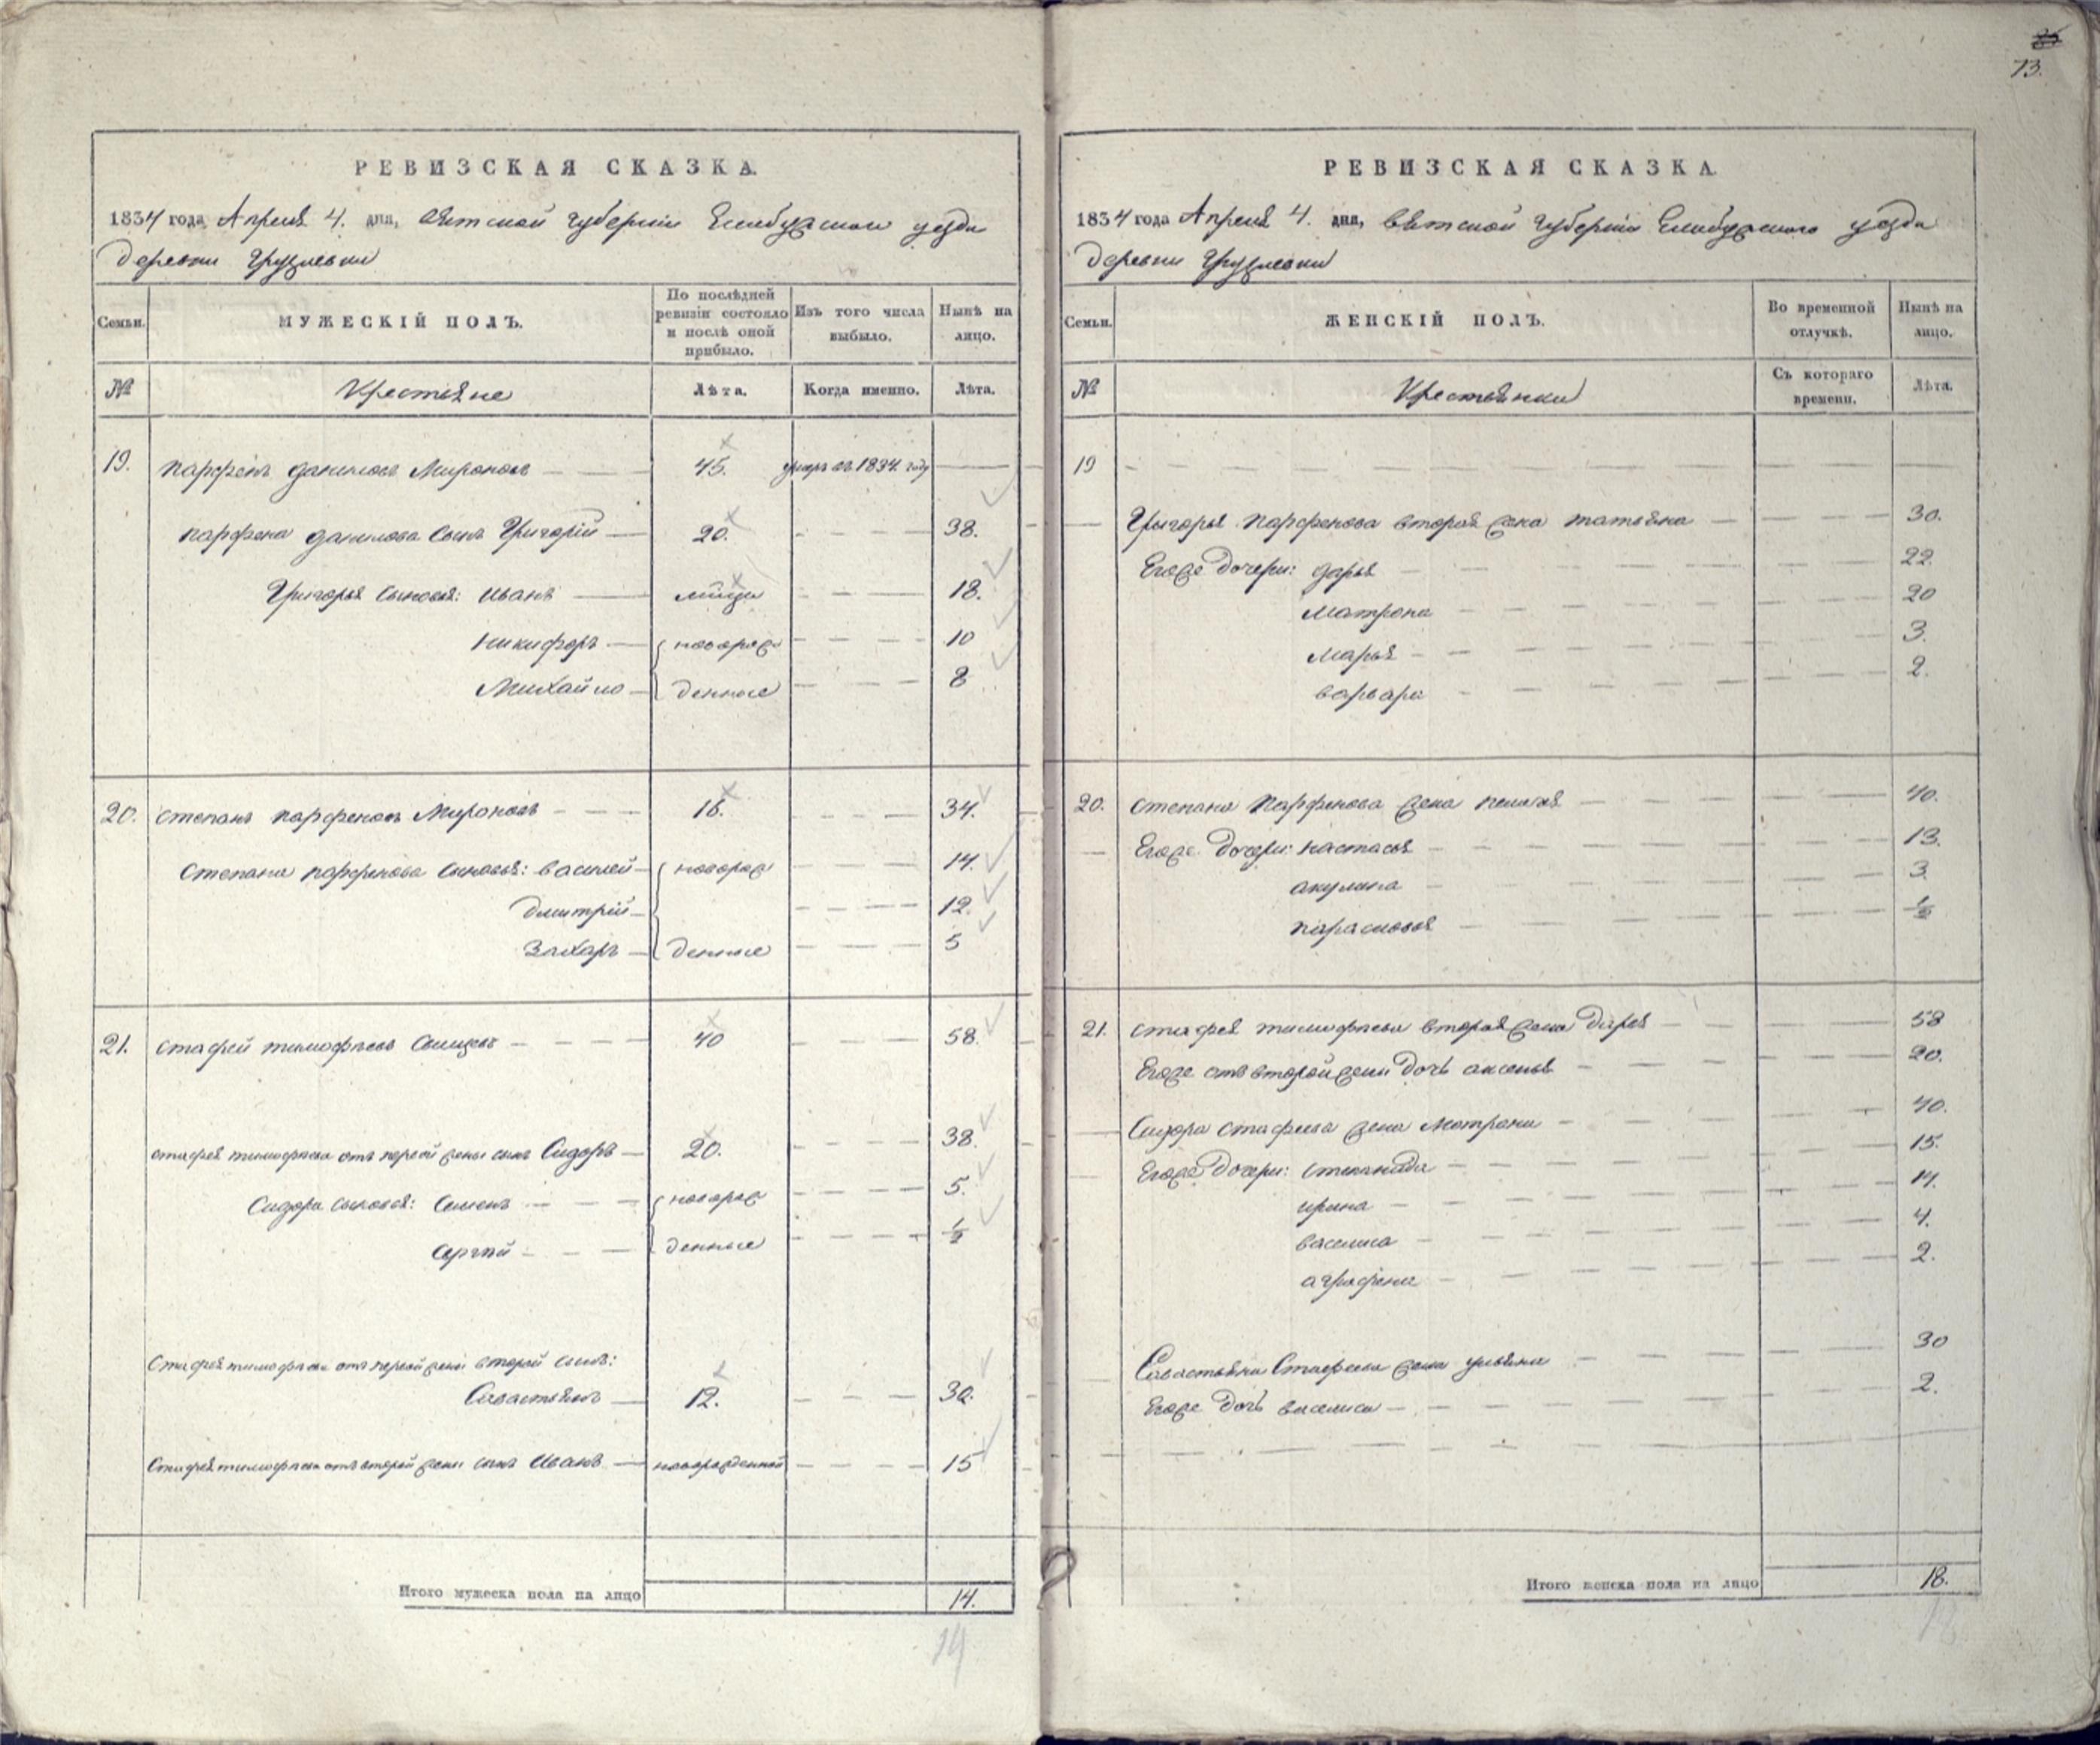 73.
РЕВИЗСКАЯ СКАЗКА.
1834 года Апреля 4. дня, Вятской губернии Елабужского уезда
деревни
Семьи.
МУЖЕСКІЙ ПОЛЪ.
По послѣдней ревизіи состояло и послѣ оной прибыло.
Изъ того числа выбыло.
Нынѣ на лицо.
№
Крестьяне
Лѣта.
Когда именно.
Лѣта.
19. Парфенъ Даниловъ Мироновъ 45. умеръ въ году
Парфена Данилова сынъ Григорій 20. 38.
Григорья сыновья: Иванъ 18.
Никифоръ новорож 10
Михайло денные 8
20. Степанъ Парфеновъ Мироновъ 16. 34.
Степана Парфенова сыновья: Василей новорож 14.
Дмитрій 12.
Захаръ денные 5
21. Стафей Тимофѣевъ 40 58.
Стафея Тимофѣева отъ первой жены сынъ Сидоръ 20. 38.
Сидора сыновья: Семенъ новорож 5.
Сергѣй денные 1/2
Стафея Тимофѣева отъ первой жены второй сынъ:
Савастьянъ 12. 30.
Стафея Тимофѣева отъ второй жены сынъ Иванъ новорожденной 15
Итого мужеска пола на лицо 14.
14
РЕВИЗСКАЯ СКАЗКА.
1834 года Апреля 4. дня, Вятской губерніи Елабужского уезда
деревни
Семьи.
ЖЕНСКІЙ ПОЛЪ.
Во временной отлучкѣ.
Нынѣ на лицо.
№
Крестьянки
Съ котораго времени.
Лѣта.
19
Григорья Парфенова вторая жена Татьяна 30.
Егоже дочери: Дарья 22.
Матрона 20
Марья 3.
Варвара 2.
20. Степана Парфенова жена Пелагея 40.
Егоже дочери: Настасья 13.
Акулина 3
Парасковья 1/2
21. Стафея Тимофѣева вторая жена Дарья 58
Егоже отъ второй жены дочь Аксенья 20.
Сидора Стафеева жена Матрона 40.
Егоже дочери: Степанида 15.
Ирина 14.
Василиса 4.
Аграфена 2.
Савастьяна Стафеева жена Ульяна 30
Егоже дочь Василиса 2.
Итого женска пола на лицо 18.
18